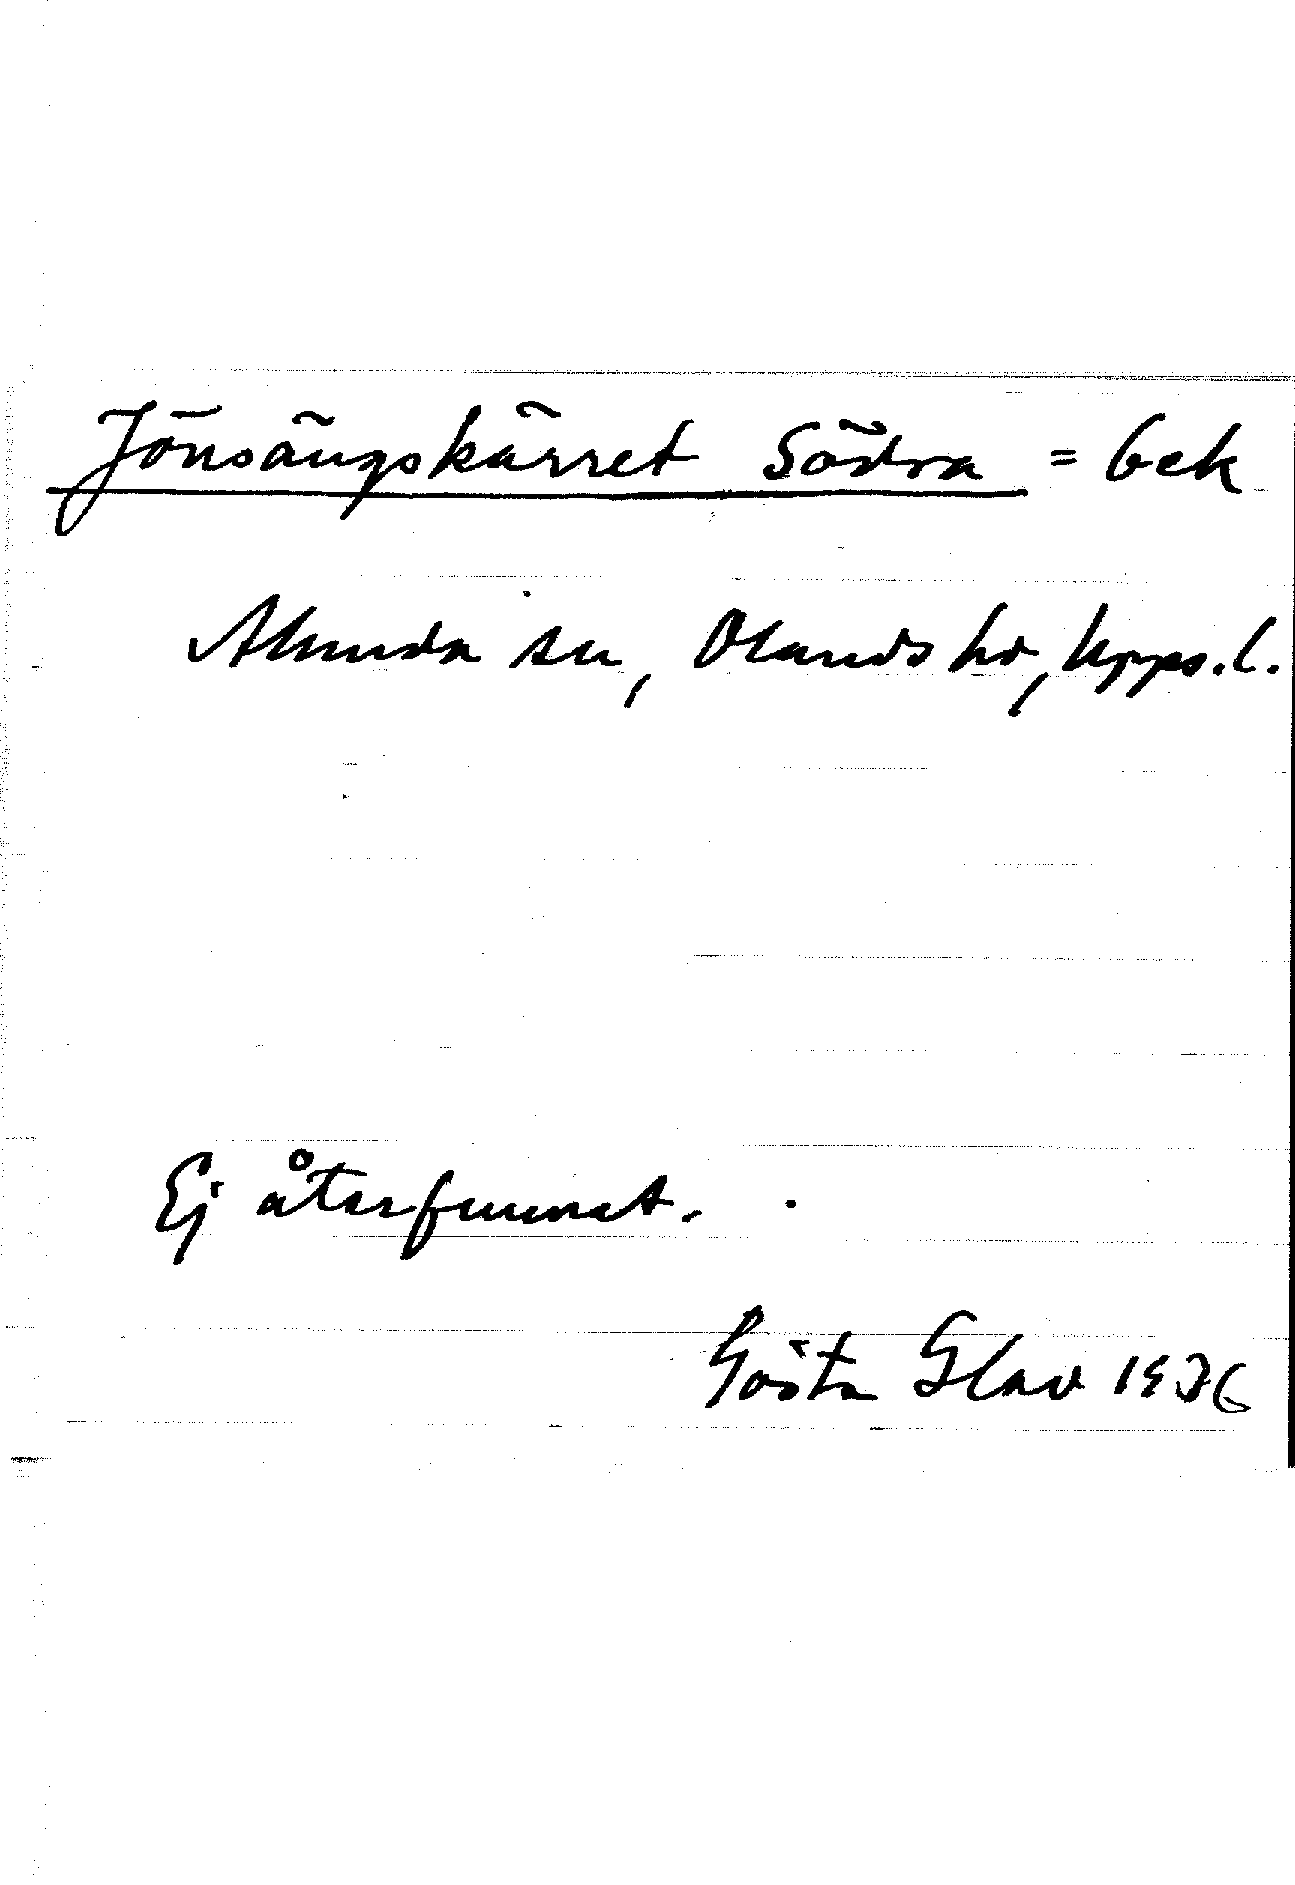 Jönsängskärret Södra = bek
Alunda sn, Olands hd, Upps. l.
Ej återfunnet.
Gösta Glav 1936